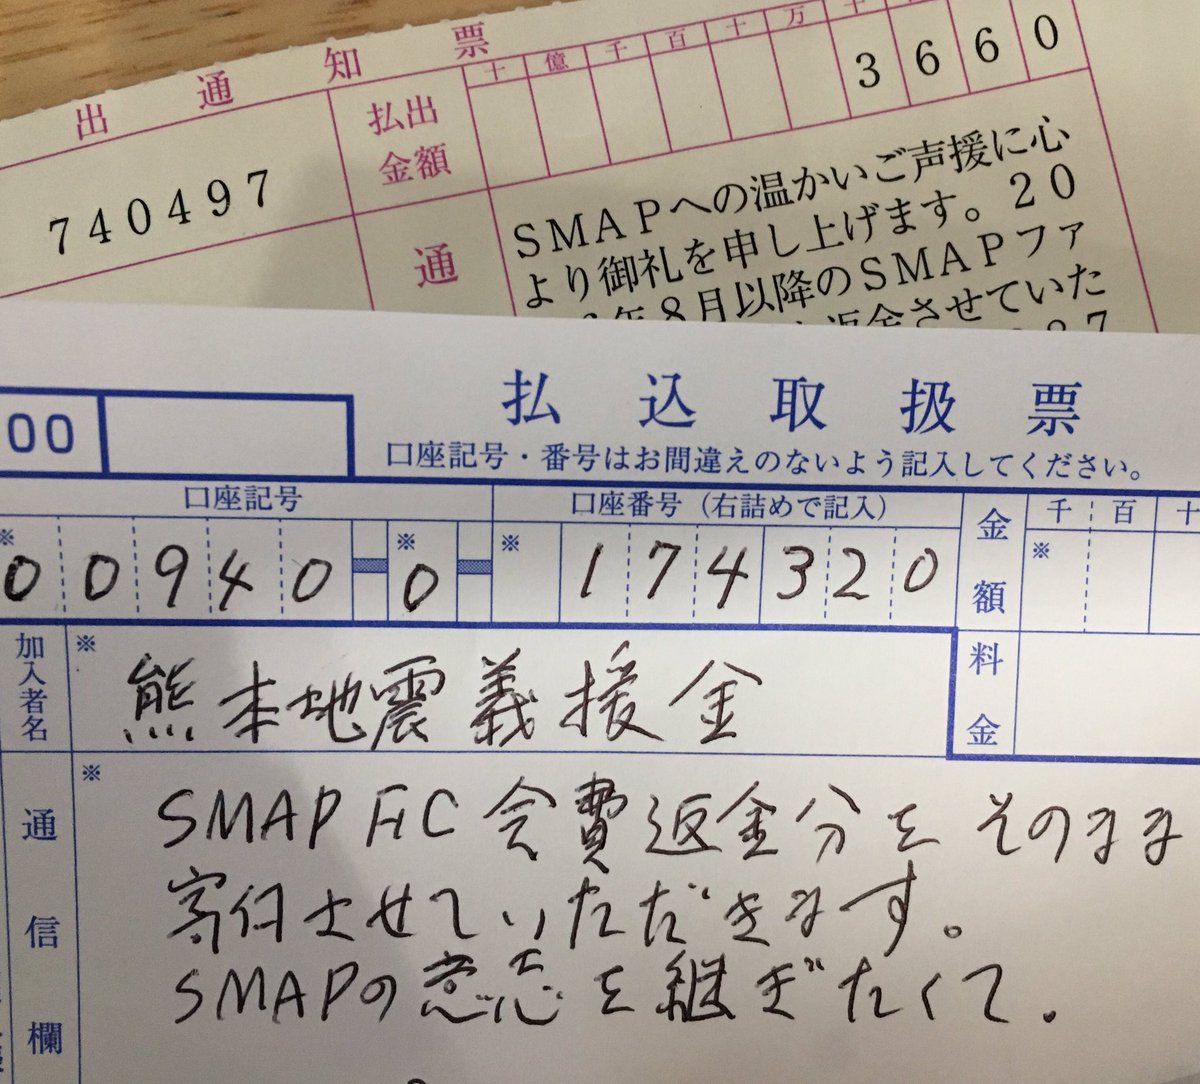 出通知票
払出金額
十億千百十万千
3660
740497
通
SMAPへの温かいご声援に心
より御礼を申し上げます。20
年8月以降のSMAPファ
返金させていた
払込取扱票
00
口座記号・番号はお間違えのないよう記入してください。
口座記号
口座番号（右詰めで記入）
金額
千百十
※ 00940 ※ 0 ※ 174320 ※
加入者名
※
熊本地震義援金
料金
通信欄
※
SMAP F.C 会費返金分を そのまま
寄付させていただきます。
SMAPの意志を継ぎたくて.